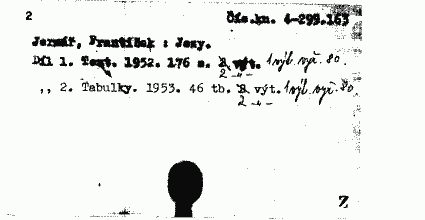 2
Čís.kn. 4-299.163
Jermář, František : Jezy.
Díl 1. Text. 1952. 176 s. 2 výt. 1 výt. vyř. 80.
2 -„-
,, 2. Tabulky. 1953. 46 tb. 2 výt. 1 výt. vyř. 80
2 -„-
Z